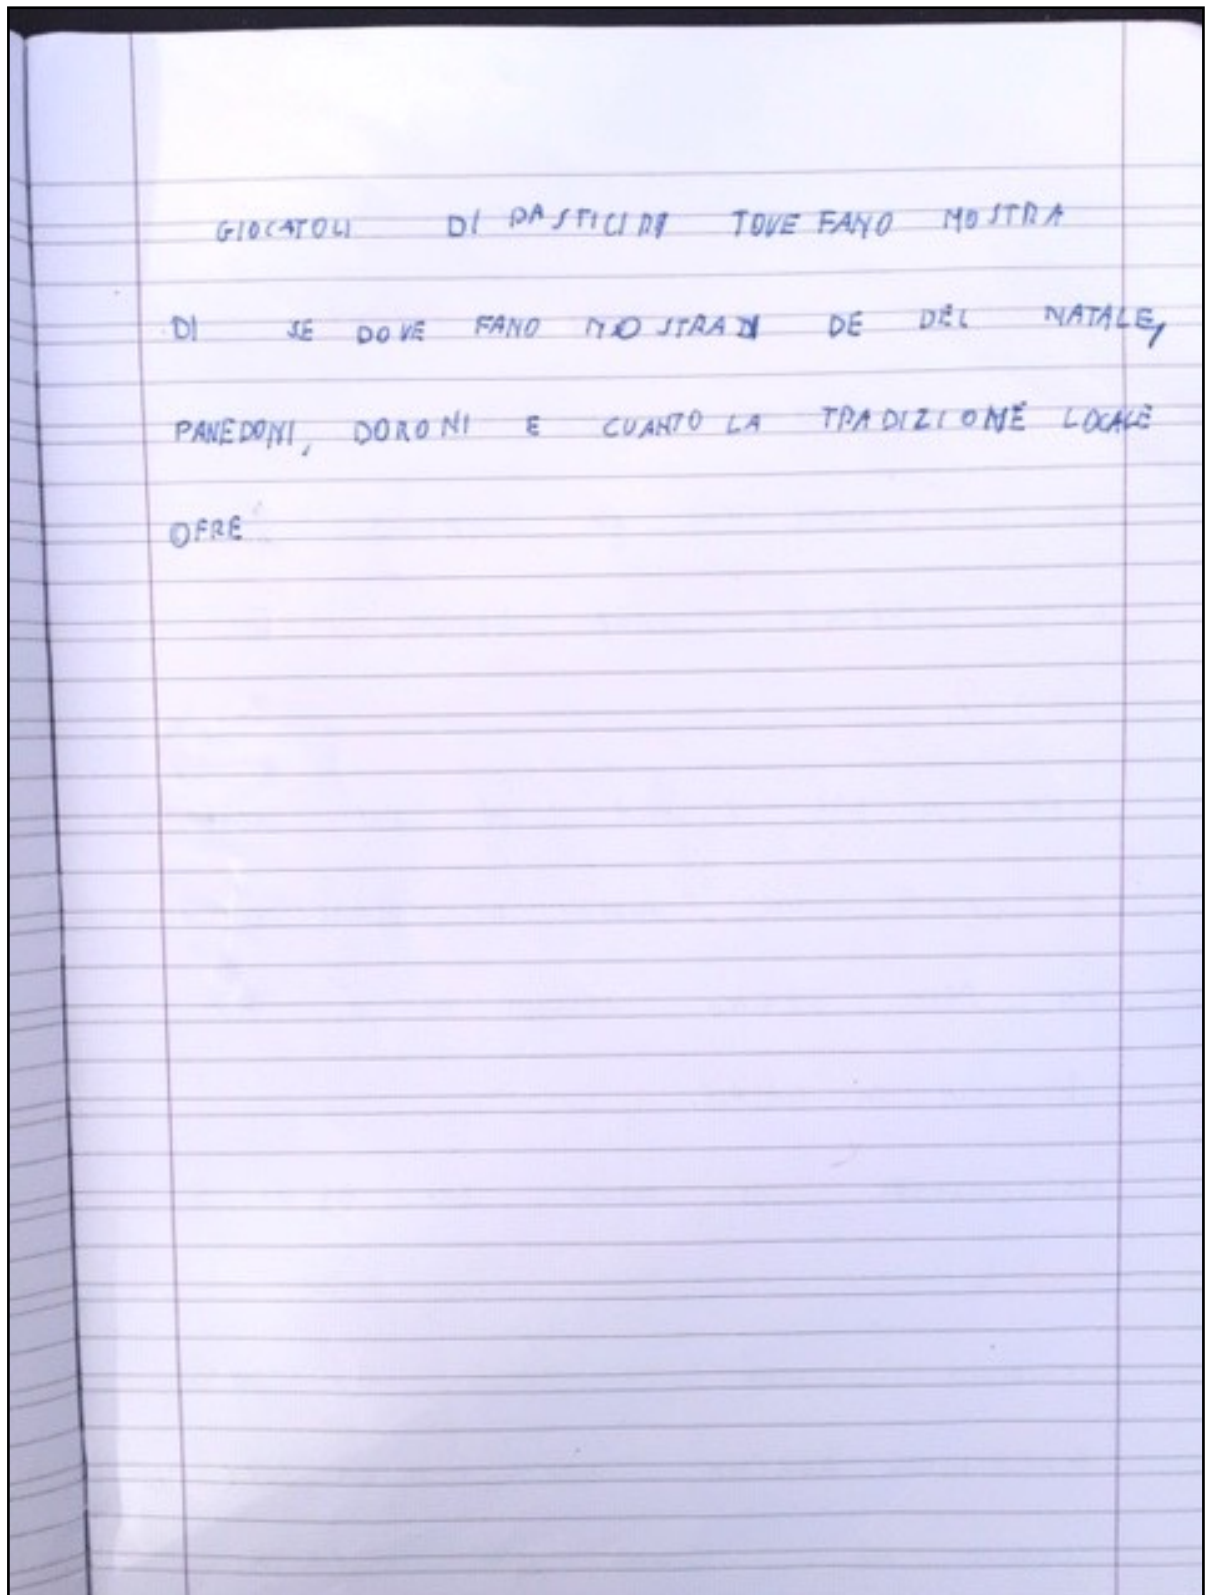 GIOCATOLI DI PASTICIRI TOVE FANO MOSTRA
DI SE DOVE FANO MOSTRA DE DEL NATALE,
PANEDONI, DORONI E CUANTO LA TRADIZIONE LOCALE
OFRE